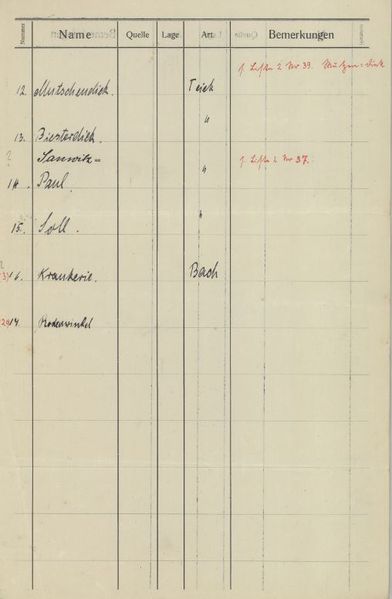 Nummer Name Quelle Lage Art Bemerkungen
s. Liste 2 Nr 39.
12. Mutschendiek. Teich
13. Biesterdiek. "
? Sanwitz=
14. Paul. " s. Liste 2 Nr 37.
15. Soll. "
16. Krankerie. Bach
17. Rodenwinkel